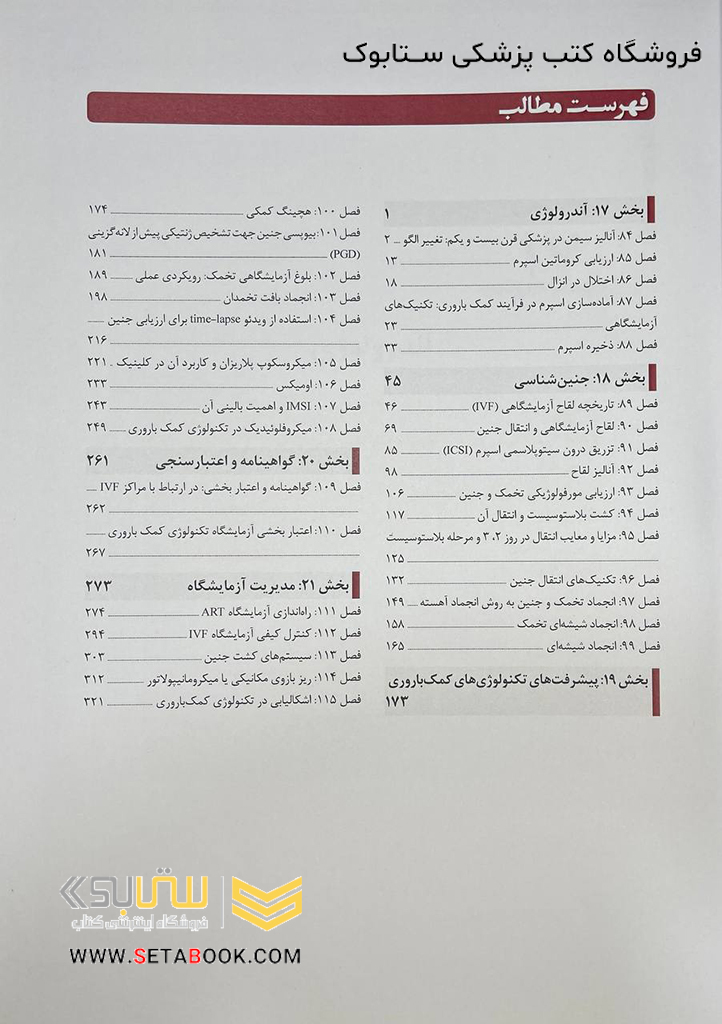 فروشگاه کتب پزشکی ستابوک
فهرست مطالب
بخش ۱۷: آندرولوژی ۱
فصل ۸۴: آنالیز سیمن در پزشکی قرن بیست و یکم: تغییر الگو ۲
فصل ۸۵: ارزیابی کروماتین اسپرم ۱۳
فصل ۸۶: اختلال در انزال ۱۸
فصل ۸۷: آماده‌سازی اسپرم در فرآیند کمک باروری: تکنیک‌های
آزمایشگاهی ۲۳
فصل ۸۸: ذخیره اسپرم ۳۳
بخش ۱۸: جنین‌شناسی ۴۵
فصل ۸۹: تاریخچه لقاح آزمایشگاهی (IVF) ۴۶
فصل ۹۰: لقاح آزمایشگاهی و انتقال جنین ۶۹
فصل ۹۱: تزریق درون سیتوپلاسمی اسپرم (ICSI) ۸۵
فصل ۹۲: آنالیز لقاح ۹۸
فصل ۹۳: ارزیابی مورفولوژیکی تخمک و جنین ۱۰۶
فصل ۹۴: کشت بلاستوسیست و انتقال آن ۱۱۷
فصل ۹۵: مزایا و معایب انتقال در روز ۲، ۳ و مرحله بلاستوسیست
۱۲۵
فصل ۹۶: تکنیک‌های انتقال جنین ۱۳۲
فصل ۹۷: انجماد تخمک و جنین به روش انجماد آهسته ۱۴۹
فصل ۹۸: انجماد شیشه‌ای تخمک ۱۵۸
فصل ۹۹: انجماد شیشه‌ای ۱۶۵
بخش ۱۹: پیشرفت‌های تکنولوژی‌های کمک‌باروری
۱۷۳
فصل ۱۰۰: هچینگ کمکی ۱۷۴
فصل ۱۰۱: بیوپسی جنین جهت تشخیص ژنتیکی پیش از لانه‌گزینی
(PGD) ۱۸۱
فصل ۱۰۲: بلوغ آزمایشگاهی تخمک: رویکردی عملی ۱۸۹
فصل ۱۰۳: انجماد بافت تخمدان ۱۹۸
فصل ۱۰۴: استفاده از ویدئو time-lapse برای ارزیابی جنین
۲۱۶
فصل ۱۰۵: میکروسکوپ پلاریزان و کاربرد آن در کلینیک ۲۲۱
فصل ۱۰۶: اومیکس ۲۳۳
فصل ۱۰۷: IMSI و اهمیت بالینی آن ۲۴۳
فصل ۱۰۸: میکروفلوئیدیک در تکنولوژی کمک باروری ۲۴۹
بخش ۲۰: گواهینامه و اعتبارسنجی ۲۶۱
فصل ۱۰۹: گواهینامه و اعتبار بخشی: در ارتباط با مراکز IVF
۲۶۲
فصل ۱۱۰: اعتبار بخشی آزمایشگاه تکنولوژی کمک باروری
۲۶۷
بخش ۲۱: مدیریت آزمایشگاه ۲۷۳
فصل ۱۱۱: راه‌اندازی آزمایشگاه ART ۲۷۴
فصل ۱۱۲: کنترل کیفی آزمایشگاه IVF ۲۹۴
فصل ۱۱۳: سیستم‌های کشت جنین ۳۰۳
فصل ۱۱۴: ریز بازوی مکانیکی یا میکرومانیپولاتور ۳۱۲
فصل ۱۱۵: اشکالیابی در تکنولوژی کمک‌باروری ۳۲۱
ستابوک
فروشگاه اینترنتی کتاب
WWW.SETABOOK.COM